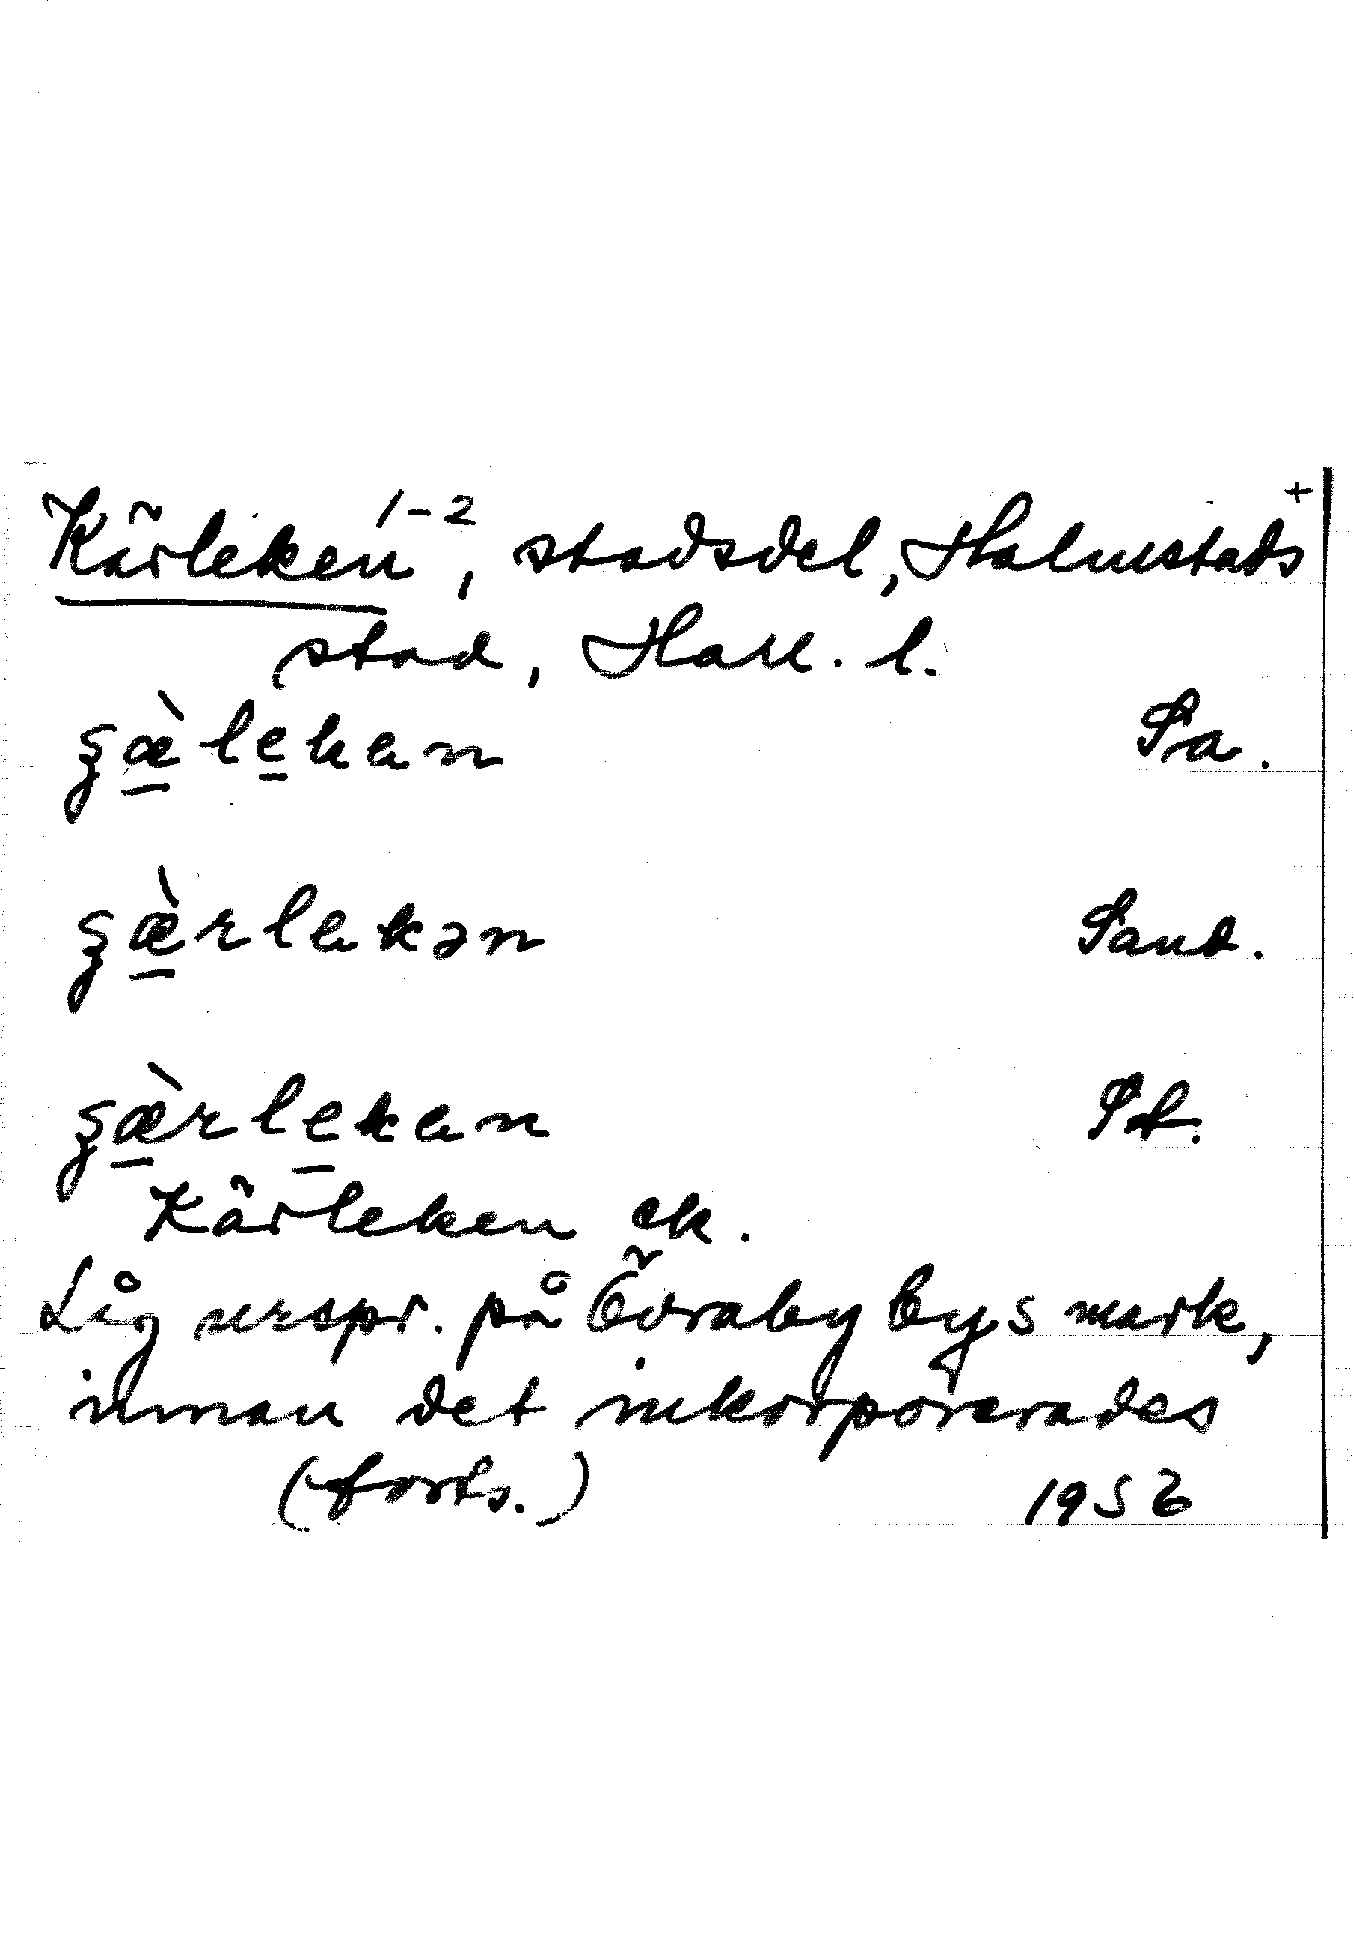 +
Kärleken 1-2, stadsdel, Halmstads
stad, Hall. l.
ʒæ̀lekan Sa.
ʒæ̀rlekən Sand.
ʒæ̀rlekan St.
Kärleken ek.
Låg urspr. på Övraby bys mark,
innan det inkorporerades
(forts.) 1952